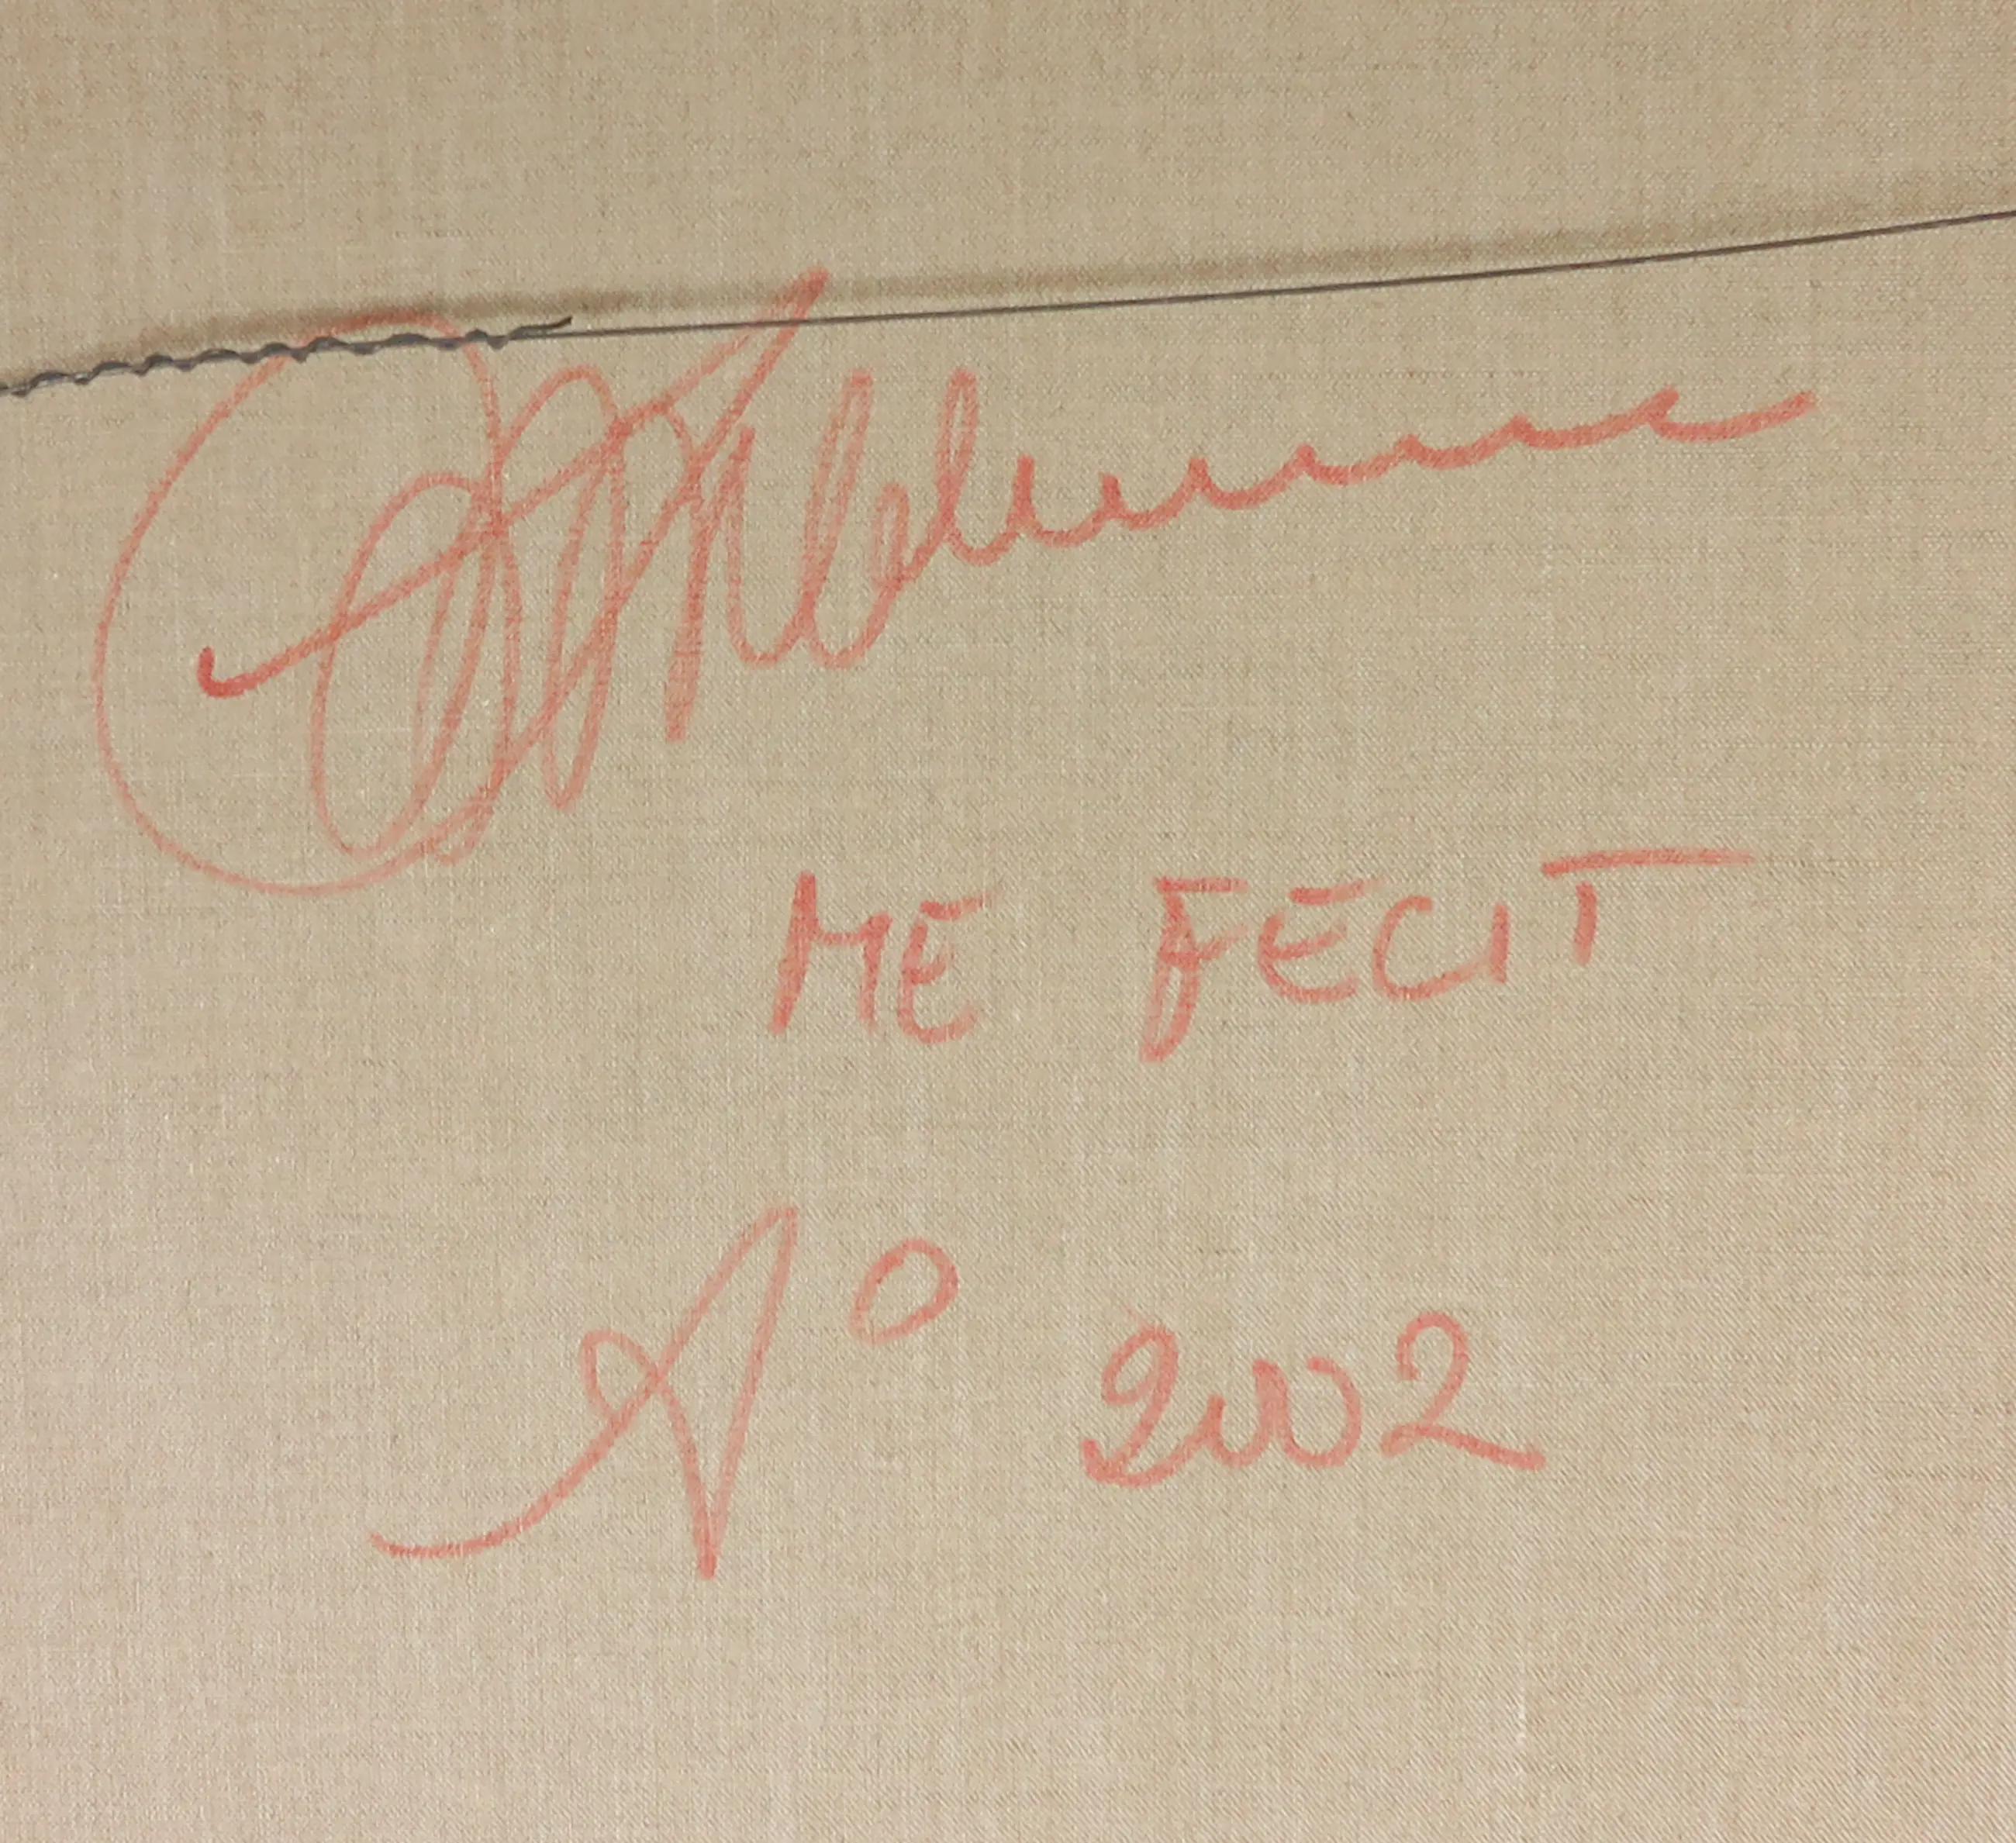 ME FECIT
A° 2002